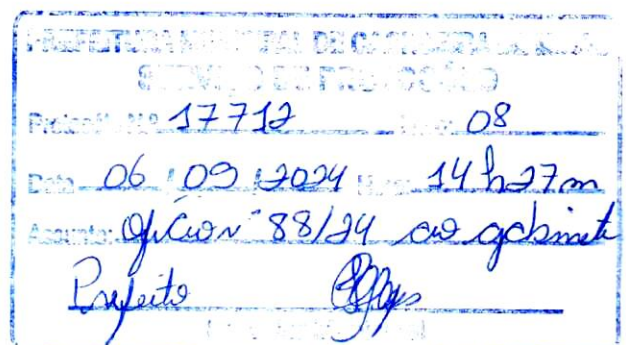 PREFEITURA MUNICIPAL DE
SERVIÇO DE PROTOCOLO
Protocolo Nº 17712 08
Data 06 / 09 / 2024 14h27m
Assunto: Ofício nº 88/24 ao gabinete
Prefeito